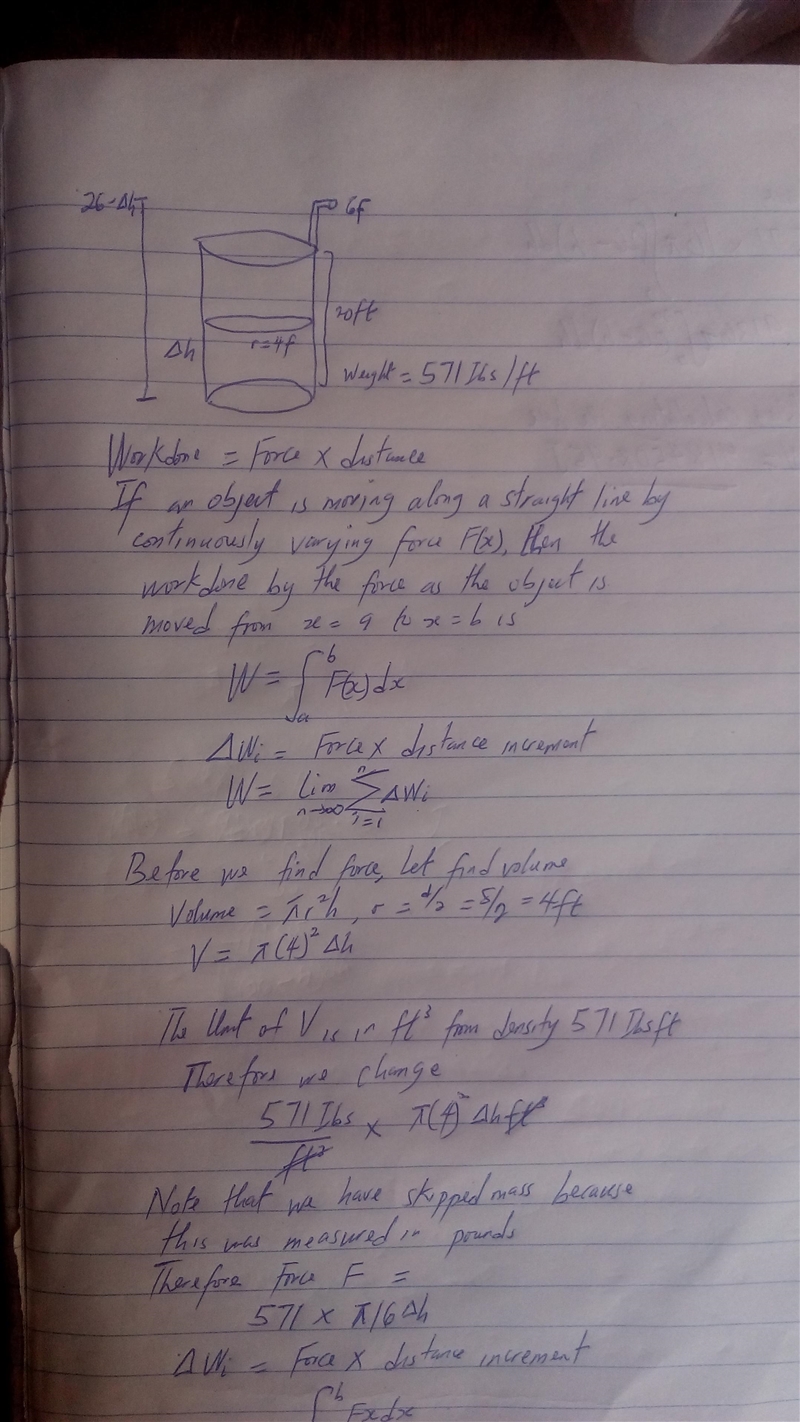 26-Δh
6f
20ft
Δh
r=4f
Weight = 571 Ibs/ft
Workdone = Force × distance
If an object is moving along a straight line by
continuously varying force F(x), then the
workdone by the force as the object is
moved from x = a to x = b is
W = ∫_a^b F(x)dx
ΔWi = Force × distance increment
W = lim n→∞ Σ_{i=1}^n ΔWi
Before we find force, Let find volume
Volume = πr²h, r = d/2 = 8/2 = 4ft
V = π(4)² Δh
The Unit of V is in ft³ from density 571 Ibsft
Therefore we change
571 Ibs/ft² × π(4)² Δh ft³
Note that we have skipped mass because
this was measured in pounds
Therefore Force F =
571 × π16 Δh
ΔWi = Force × distance increment
∫^b Fxdx